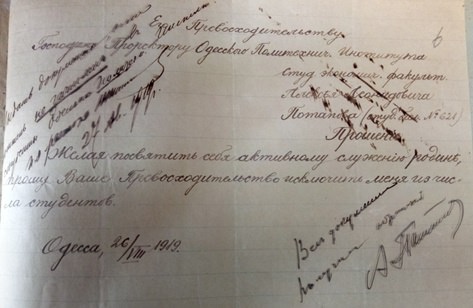 Его Превосходительству
Господину Проректору Одесского Политехнич. Института
студ. экономич. факульт.
Алексея Леонидовича
Потапова (студ. бил. № 621)
Прошение
Желая посвятить себя активному служению родине,
прошу Ваше Превосходительство исключить меня из чис-
ла студентов.
Одесса, 26/VIII 1919.
Все документы
получил обратно